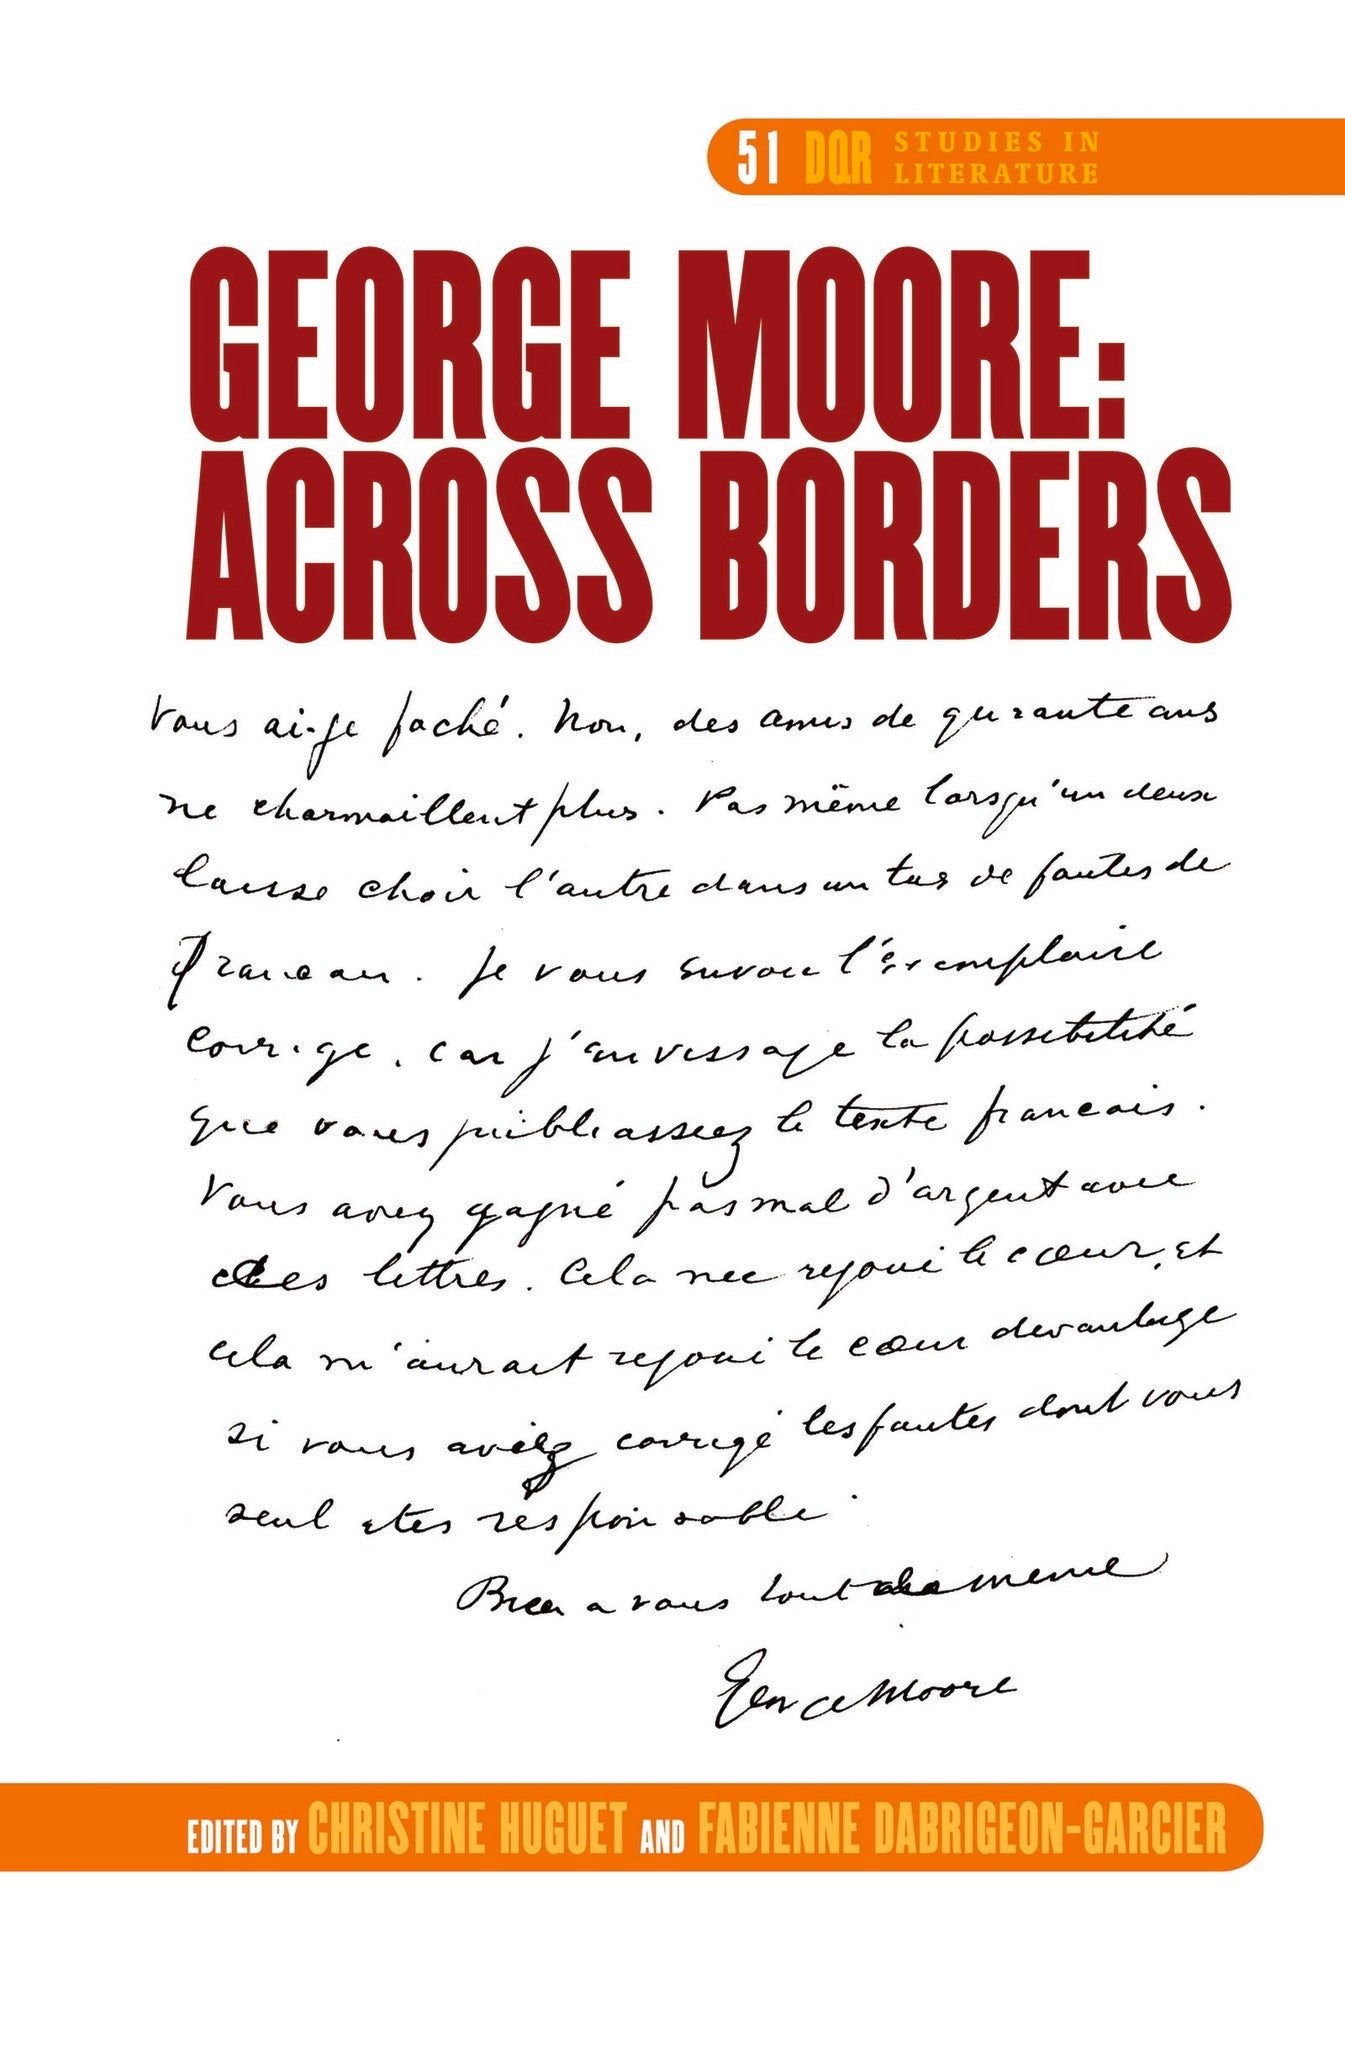 51 DQR STUDIES IN
LITERATURE
GEORGE MOORE:
ACROSS BORDERS
Vous ai-je faché. Non, des amis de quarante ans
ne charmaillent plus. Pas même lorsqu'un deux
laisse choir l'autre dans un tas de fautes de
Je vous l'exemplaire
corrige, car j'envissage la possibilité
que vous publiassiez le texte francais.
Vous avez gagné pas mal d'argent avec
des lettres. Cela me rejoui le cœur, et
cela m'aurait rejoui le cœur davantage
si vous aviez corrigé les fautes dont vous
seul etes responsable.
Bien a vous tout de meme
George Moore
EDITED BY CHRISTINE HUGUET AND FABIENNE DABRIGEON-GARCIER